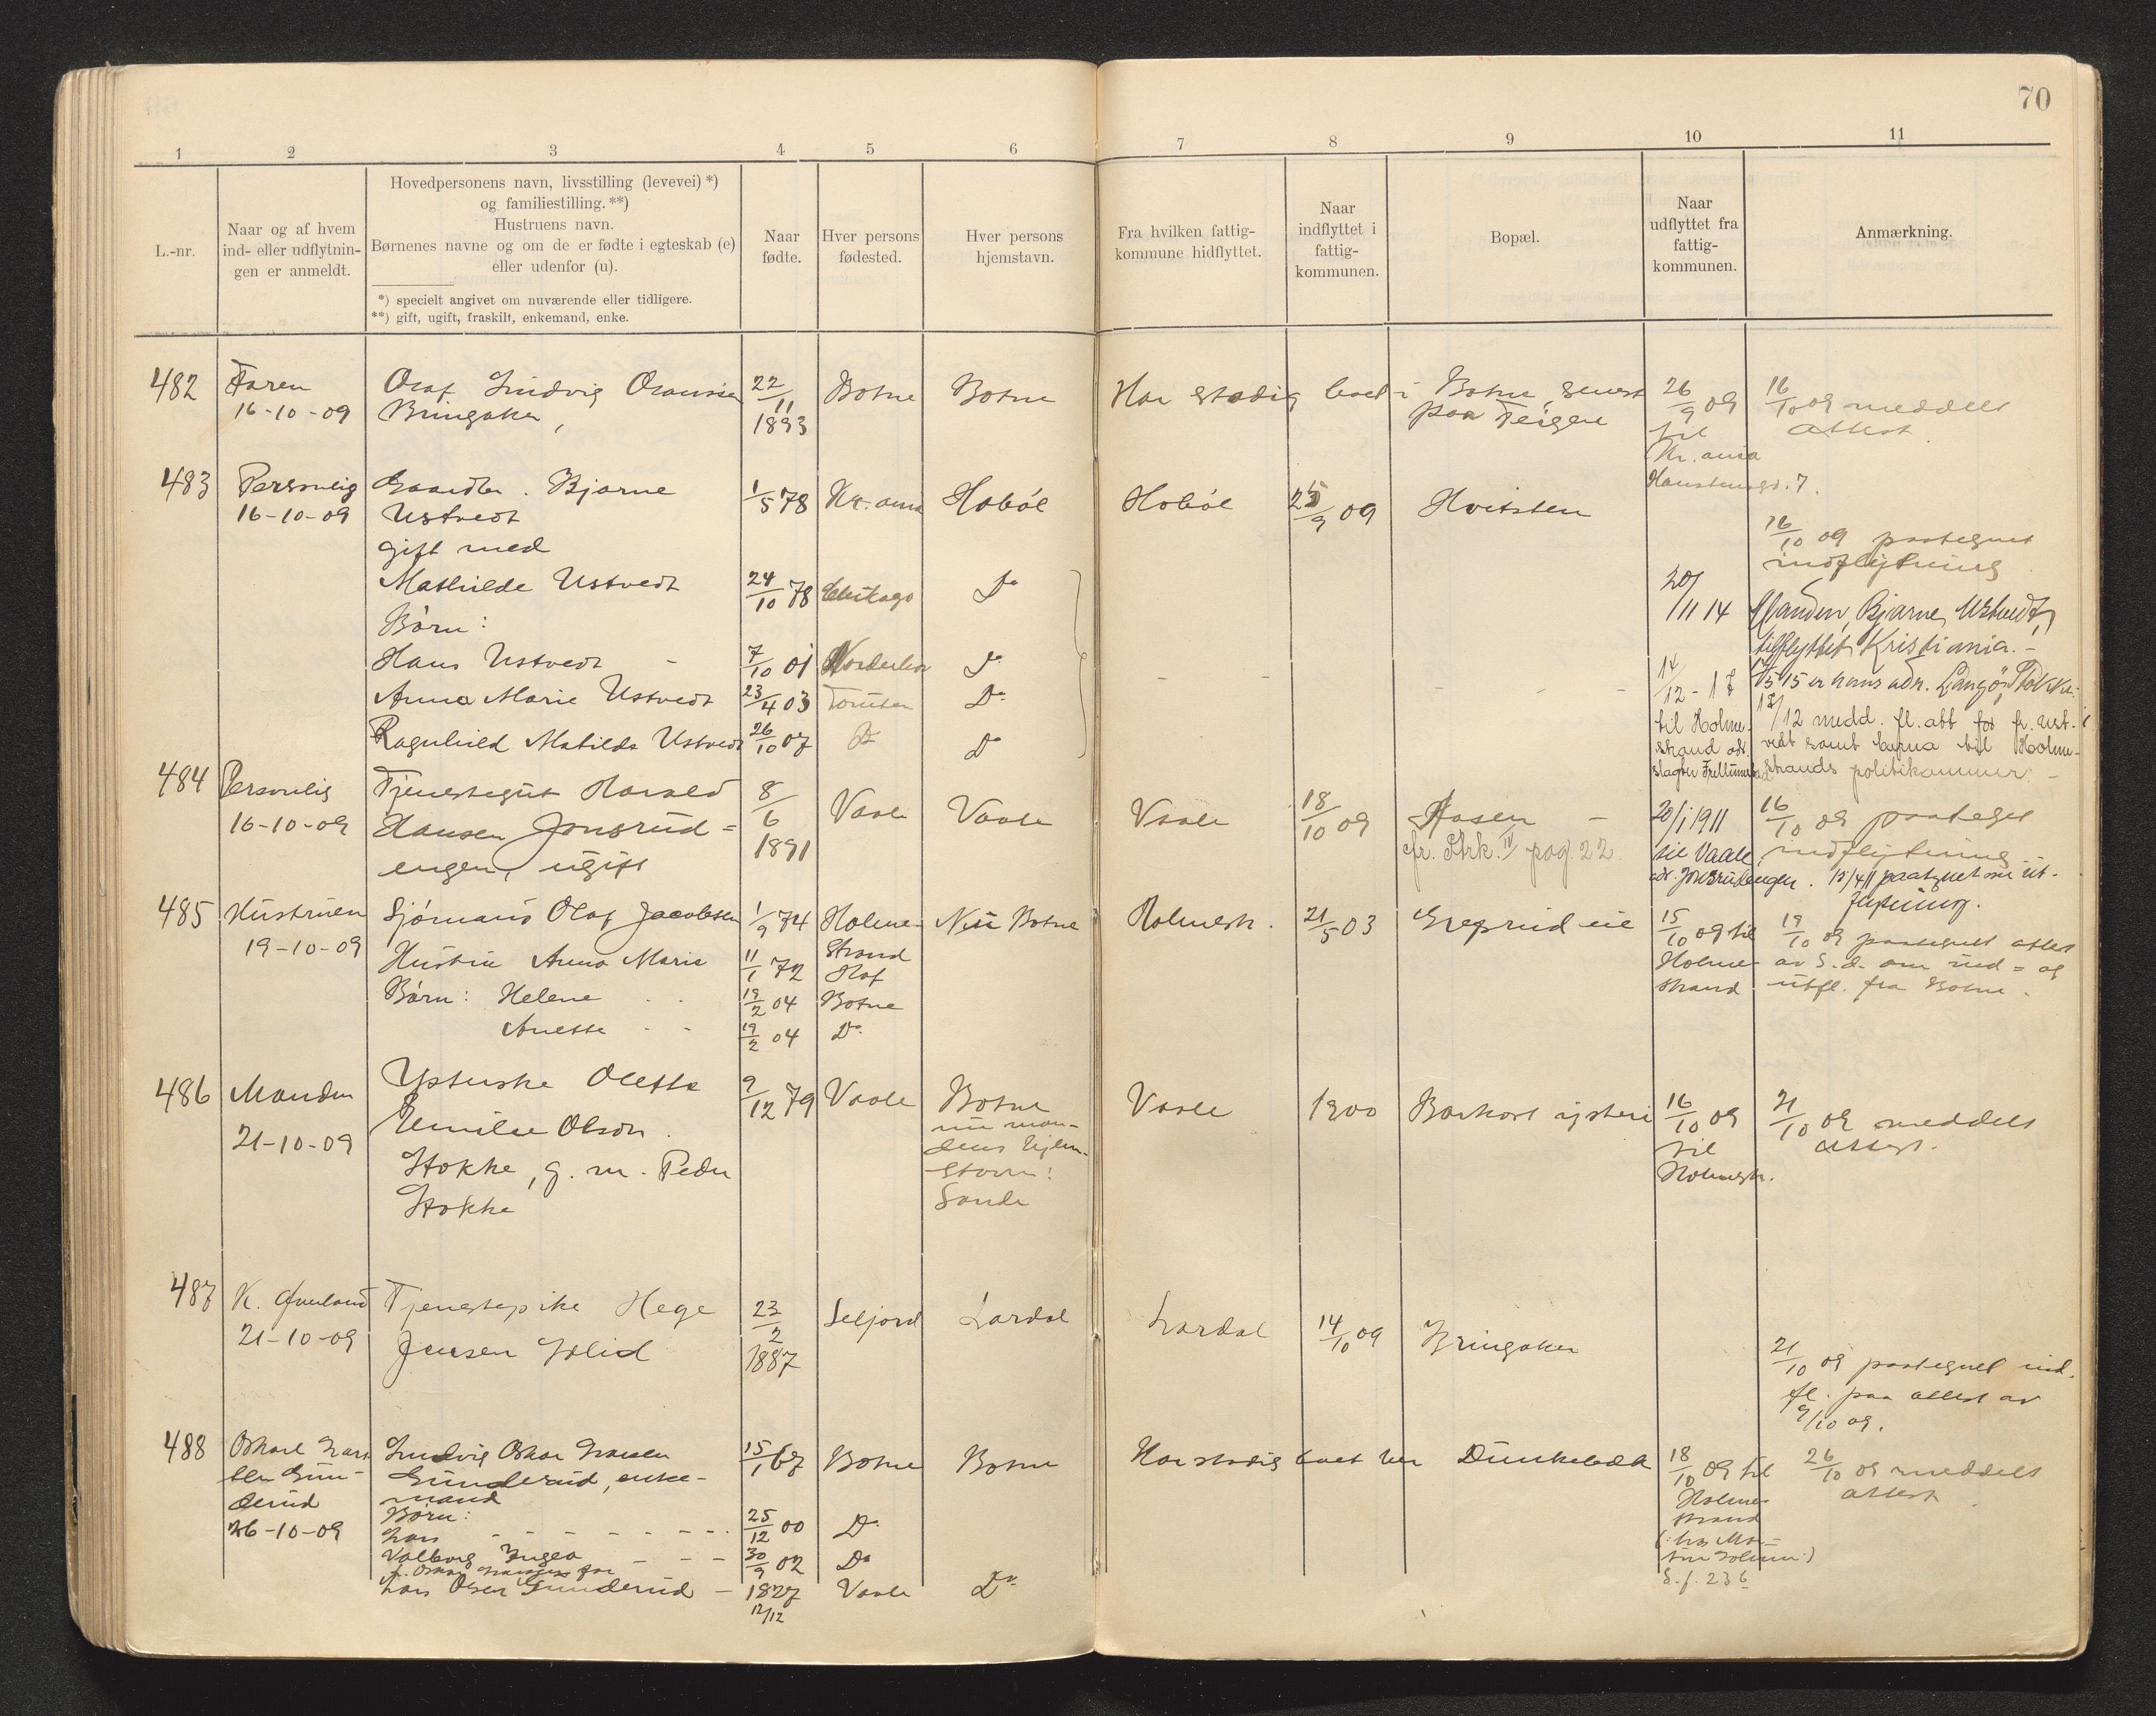 70
1 2 3 4 5 6 7 8 9 10 11
L.-nr.
Naar og af hvem
ind- eller udflytnin-
gen er anmeldt.
Hovedpersonens navn, livsstilling (levevei) *)
og familiestilling. **)
Hustruens navn.
Børnenes navne og om de er fødte i egteskab (e)
eller udenfor (u).
*) specielt angivet om nuværende eller tidligere.
**) gift, ugift, fraskilt, enkemand, enke.
Naar
fødte.
Hver persons
fødested.
Hver persons
hjemstavn.
Fra hvilken fattig-
kommune hidflyttet.
Naar
indflyttet i
fattig-
kommunen.
Bopæl.
Naar
udflyttet fra
fattig-
kommunen.
Anmærkning.
482
Faren
16-10-09
Olaf Ludvig
Bringaker,
22/11
1893
Botne
Botne
Har stadig boet i Botne, senest
paa Teigen
26/9 09
til
Kr.ania
16/10 09 meddelt
attest.
483
Personlig
16-10-09
Gaardbr. Bjarne
Ustvedt
gift med
Mathilde Ustvedt
Børn:
Hans Ustvedt -
Anna Marie Ustvedt
Ragnhild Matilde Ustvedt
1/5 78
24/10 78
7/10 01
23/4 03
26/10 07
Kr.ania
Chikago
Norderhov
Tomten
Do
Hobøl
Do
Do
Do
Do
Hobøl
25/9 09
Hvitsten
16/10 09 paategnet
indflytning
20/11 14
Manden, Bjarne Ustvedt,
tilflyttet Kristiania. -
14/12 - 18
til Holme-
strand adr.
/5 15 er hans adr. Langø,
18/12 medd. fl. att for fr. Ust-
vedt samt barna til Holme-
strands politikammer -
484
Personlig
16-10-09
Tjenestegut Harald
Hansen Jonsrud=
engen, ugift
8/6
1891
Vaale
Vaale
Vaale
18/10 09
Aasen -
cfr. Prk. IV pag. 22.
20/1 1911
til Vaale,
adr. Jonsrudengen.
16/10 09 paateget
indflytning
18/4 11 paategnet om ut-
flytning.
485
Hustruen
19-10-09
Sjømand Olaf Jacobsen
Hustru Anna Marie
Børn: Helene
Anette
1/9 74
11/1 72
19/2 04
19/2 04
Holme-
strand
Hof
Botne
Do
Nu Botne
Holmestr.
21/5 03
Greprud eie
15/10 09 til
Holme-
strand
19/10 09 paategnet attest
av S. d. om ind= og
utfl. fra Botne.
486
Manden
21-10-09
Ysterske Olette
Emilie Olsen
Stokke, g. m. Peder
Stokke
9/12 79
Vaale
Botne
nu man-
dens hjem-
stavn:
Sande
Vaale
1900
Barkost ysteri
16/10 09
til
Holmestr.
21/10 09 meddelt
attest.
487
K. Øverland
21-10-09
Tjenestepike Hege
Jensen Lid
23/2
1887
Seljord
Lardal
Lardal
14/10 09
Bringaker
21/10 09 paategnet ind.
fl. paa attest av
9/10 09.
488
Oskar Lars
sen Gun-
derud
26-10-09
Ludvig Oskar Larsen
Gunderud, enke-
mand
Børn:
Lars
Valborg Inga
Oskar Larsens far
Lars Olsen Gunderud -
15/1 67
25/12 00
30/9 02
1827
12/12
Botne
Do
Do
Vaale
Botne
Do
Har stadig boet her
Dunkebæk
18/10 09 til
Holme-
strand
S. f. 236
26/10 09 meddelt
attest.